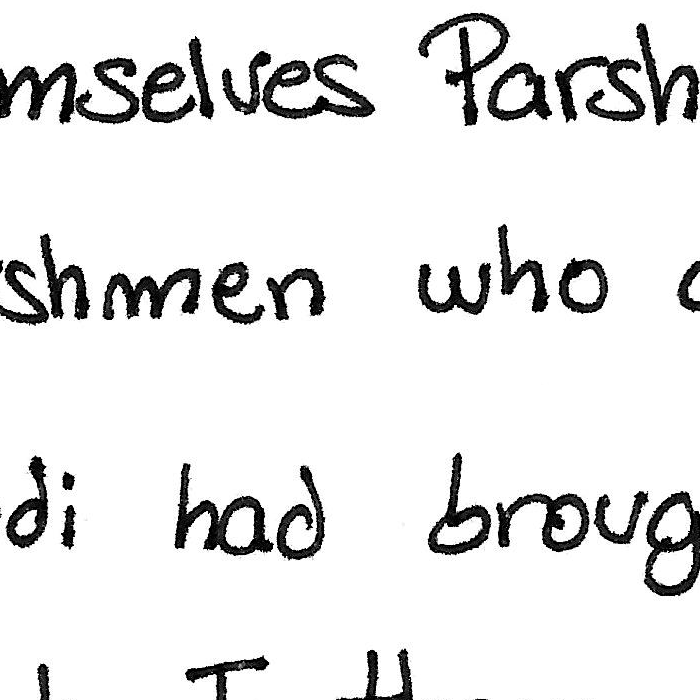 mselves Parsh
shmen who
di had broug